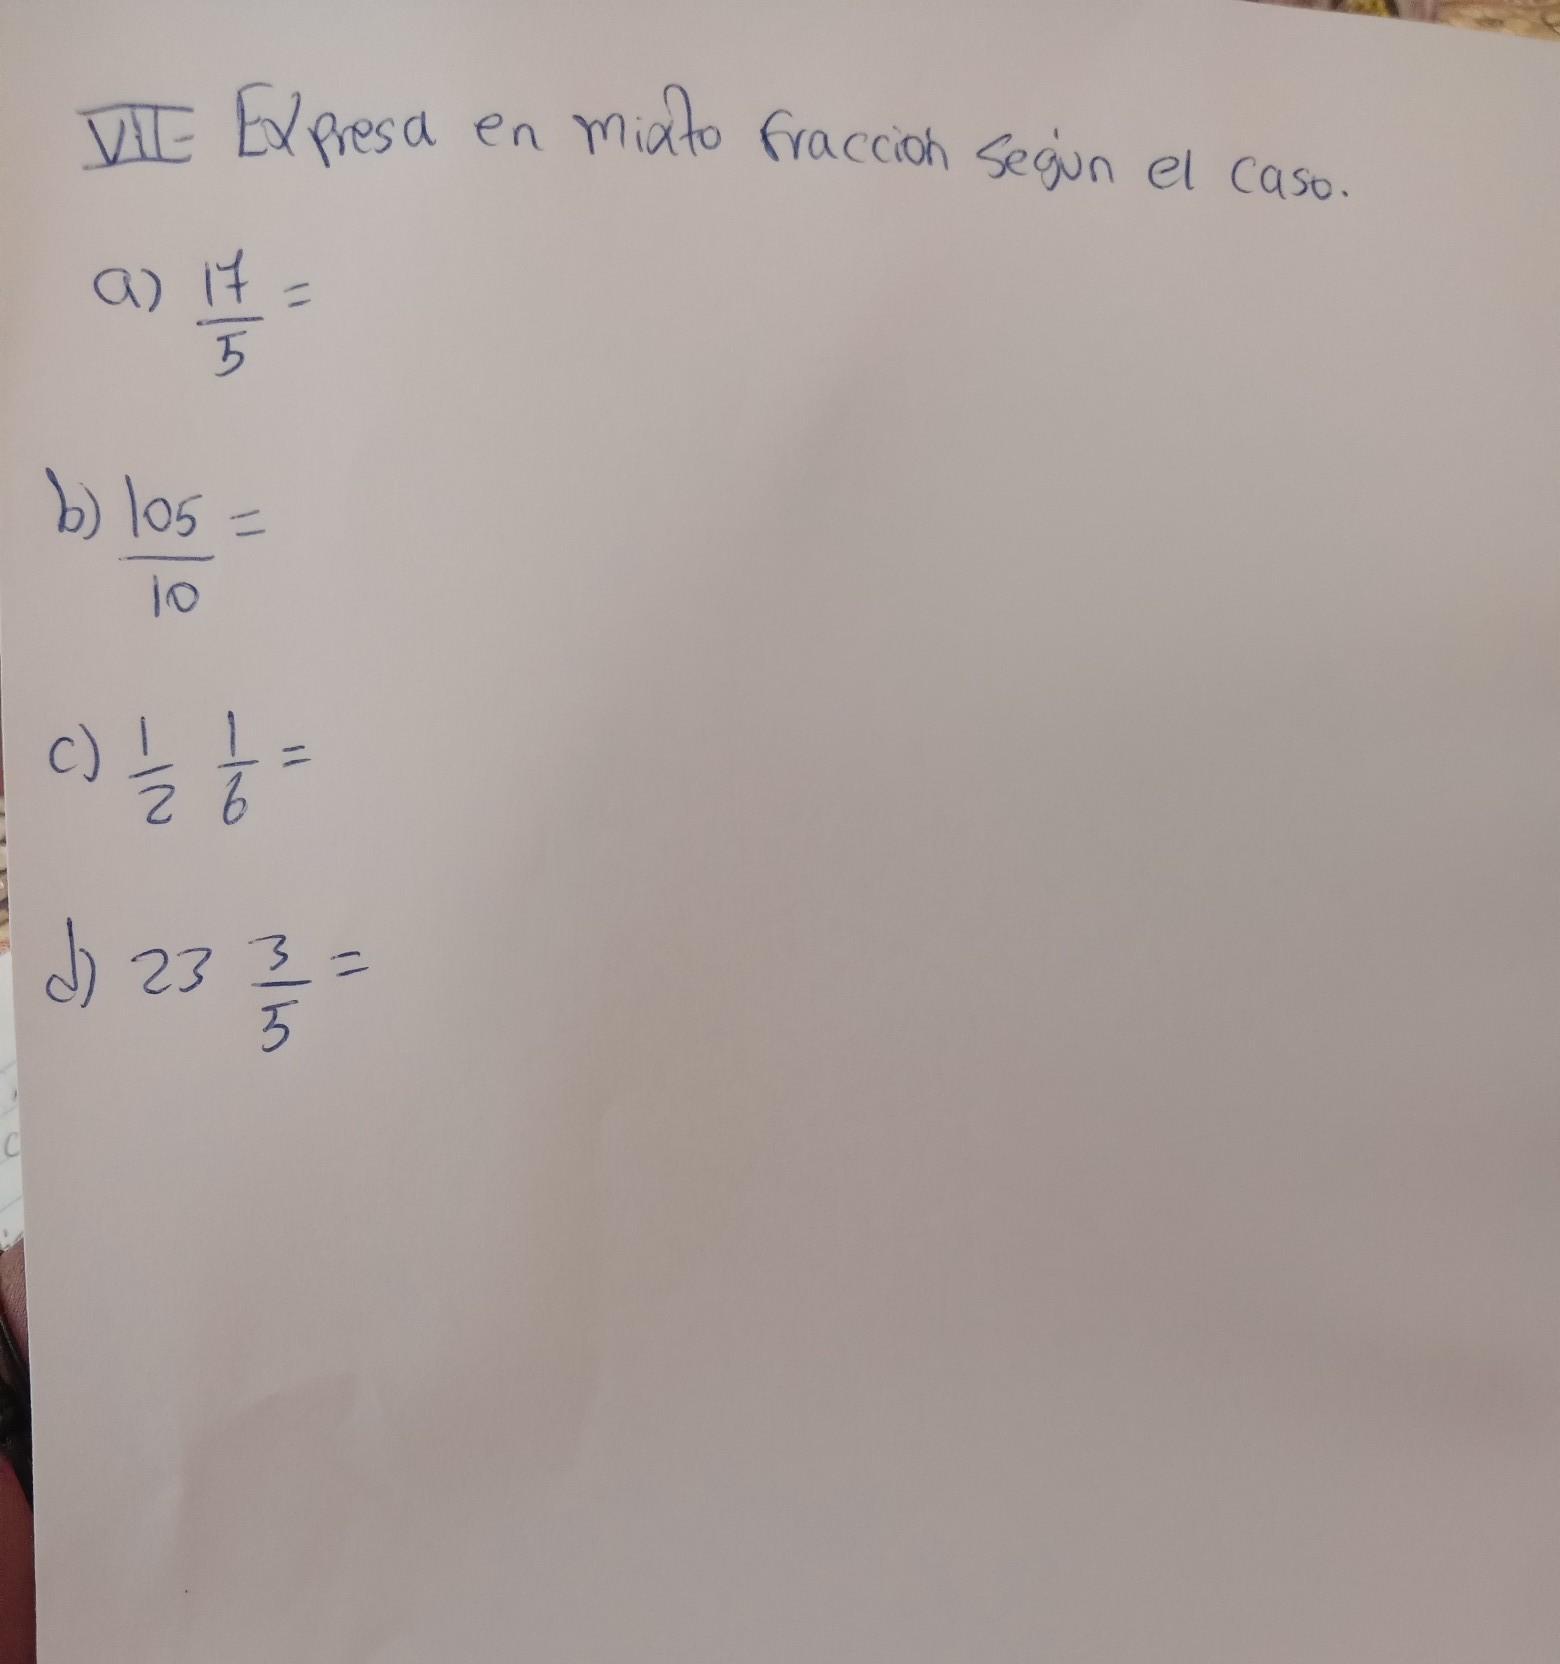 VII- Expresa en mixto fraccion según el caso.
a) 17/5 =
b) 105/10 =
c) 1/2 1/6 =
d) 23 3/5 =